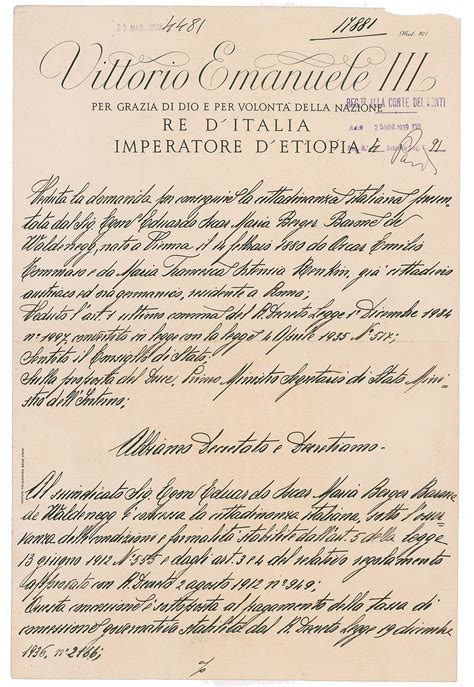 20 MAR. 1939
4481
17881
Mod. 821
Vittorio Emanuele III
PER GRAZIA DI DIO E PER VOLONTA' DELLA NAZIONE
REG.TO ALLA CORTE DEI CONTI
RE D'ITALIA
25 MAR. 1939 XVII
IMPERATORE D'ETIOPIA
91
Veduta la domanda per conseguire la cittadinanza italiana presen-
tata dal Sig. Egon Eduardo Oscar Maria Berger Barone de
Waldenegg, nato a Vienna il 14 febbraio 1880 da Oscar Emilio
Tommaso e da Maria Francesca Ortensia Renkin, già cittadino
austriaco ed ora germanico, residente a Roma;
Veduto l'art. 1 ultimo comma del R. Decreto Legge 1° Dicembre 1934
n° 1997, convertito in legge con la legge 4 Aprile 1935 N° 517;
Sentito il Consiglio di Stato;
Sulla proposta del Duce, Primo Ministro Segretario di Stato, Mini-
stro dell'Interno;
Abbiamo Decretato e Decretiamo
Al suindicato Sig. Egon Eduardo Oscar Maria Berger Barone
de Waldenegg è concessa la cittadinanza italiana, sotto l'osser-
vanza delle condizioni e formalità stabilite dall'art. 5 della Legge
13 giugno 1912 N° 555 e dagli art. 3 e 4 del relativo regolamento
approvato con R. Decreto 2 agosto 1912 n° 949;
Questa concessione è sottoposta al pagamento della tassa di
concessione governativa stabilita dal R. Decreto Legge 19 dicembre
1936, n° 2166;
%